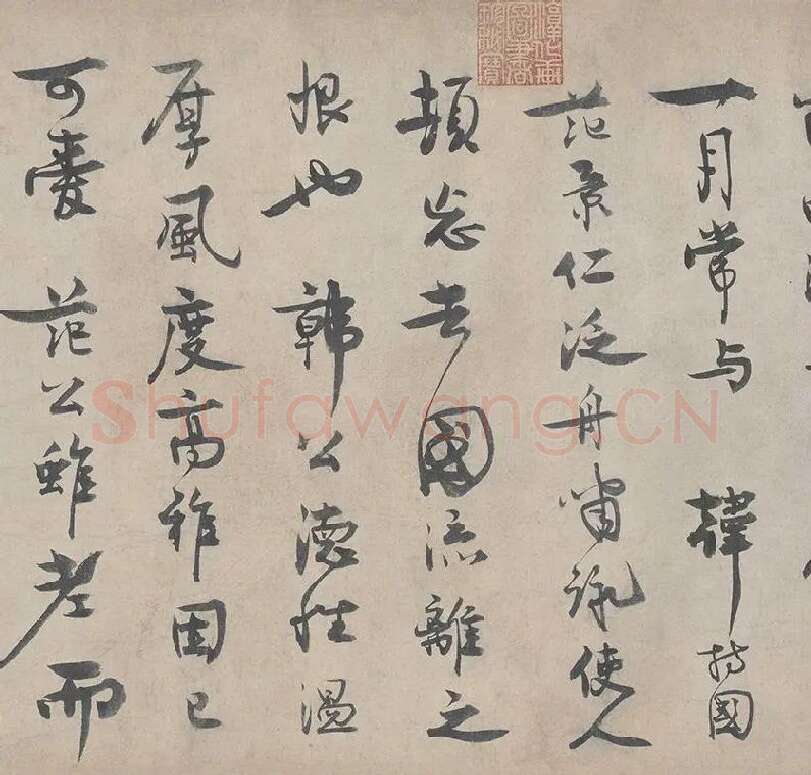 一月常与 韓持國
范景仁泛舟嘯詠使人
頓忘去國流離之
恨也 韓公德性温
厚風度高雅固已
可愛 范公雖老而
Shufawang.CN